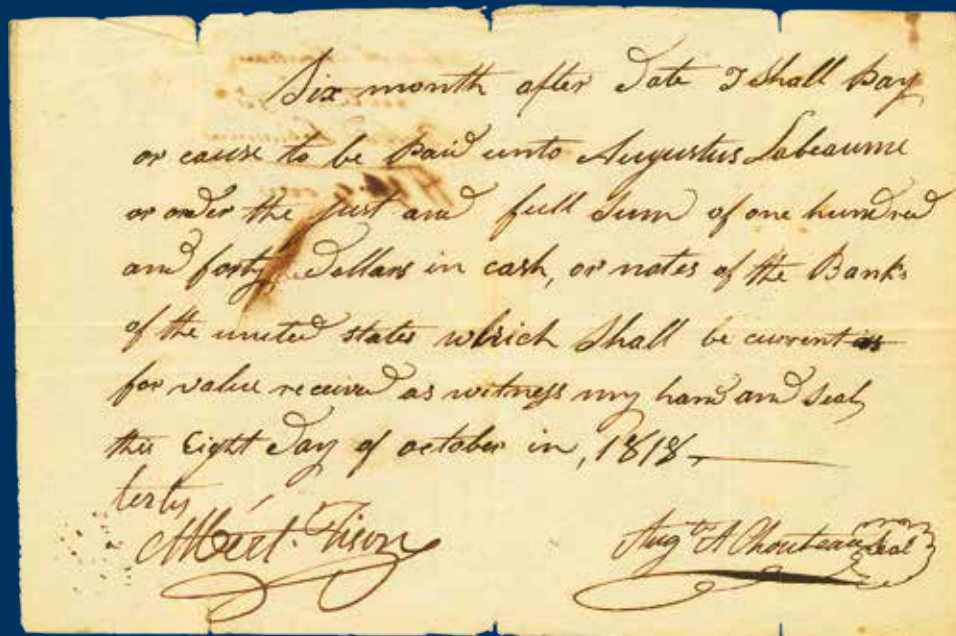 Six month after Date I Shall Pay
or cause to be Paid unto Augustus Labeaume
or order the just and full Sum of one hundred
and forty Dollars in cash, or notes of the Banks
of the united states which Shall be current
for value received as witness my hand and Seal
this Eight Day of october in, 1818
testy
Albert Tison
Augte A Chouteau Seal